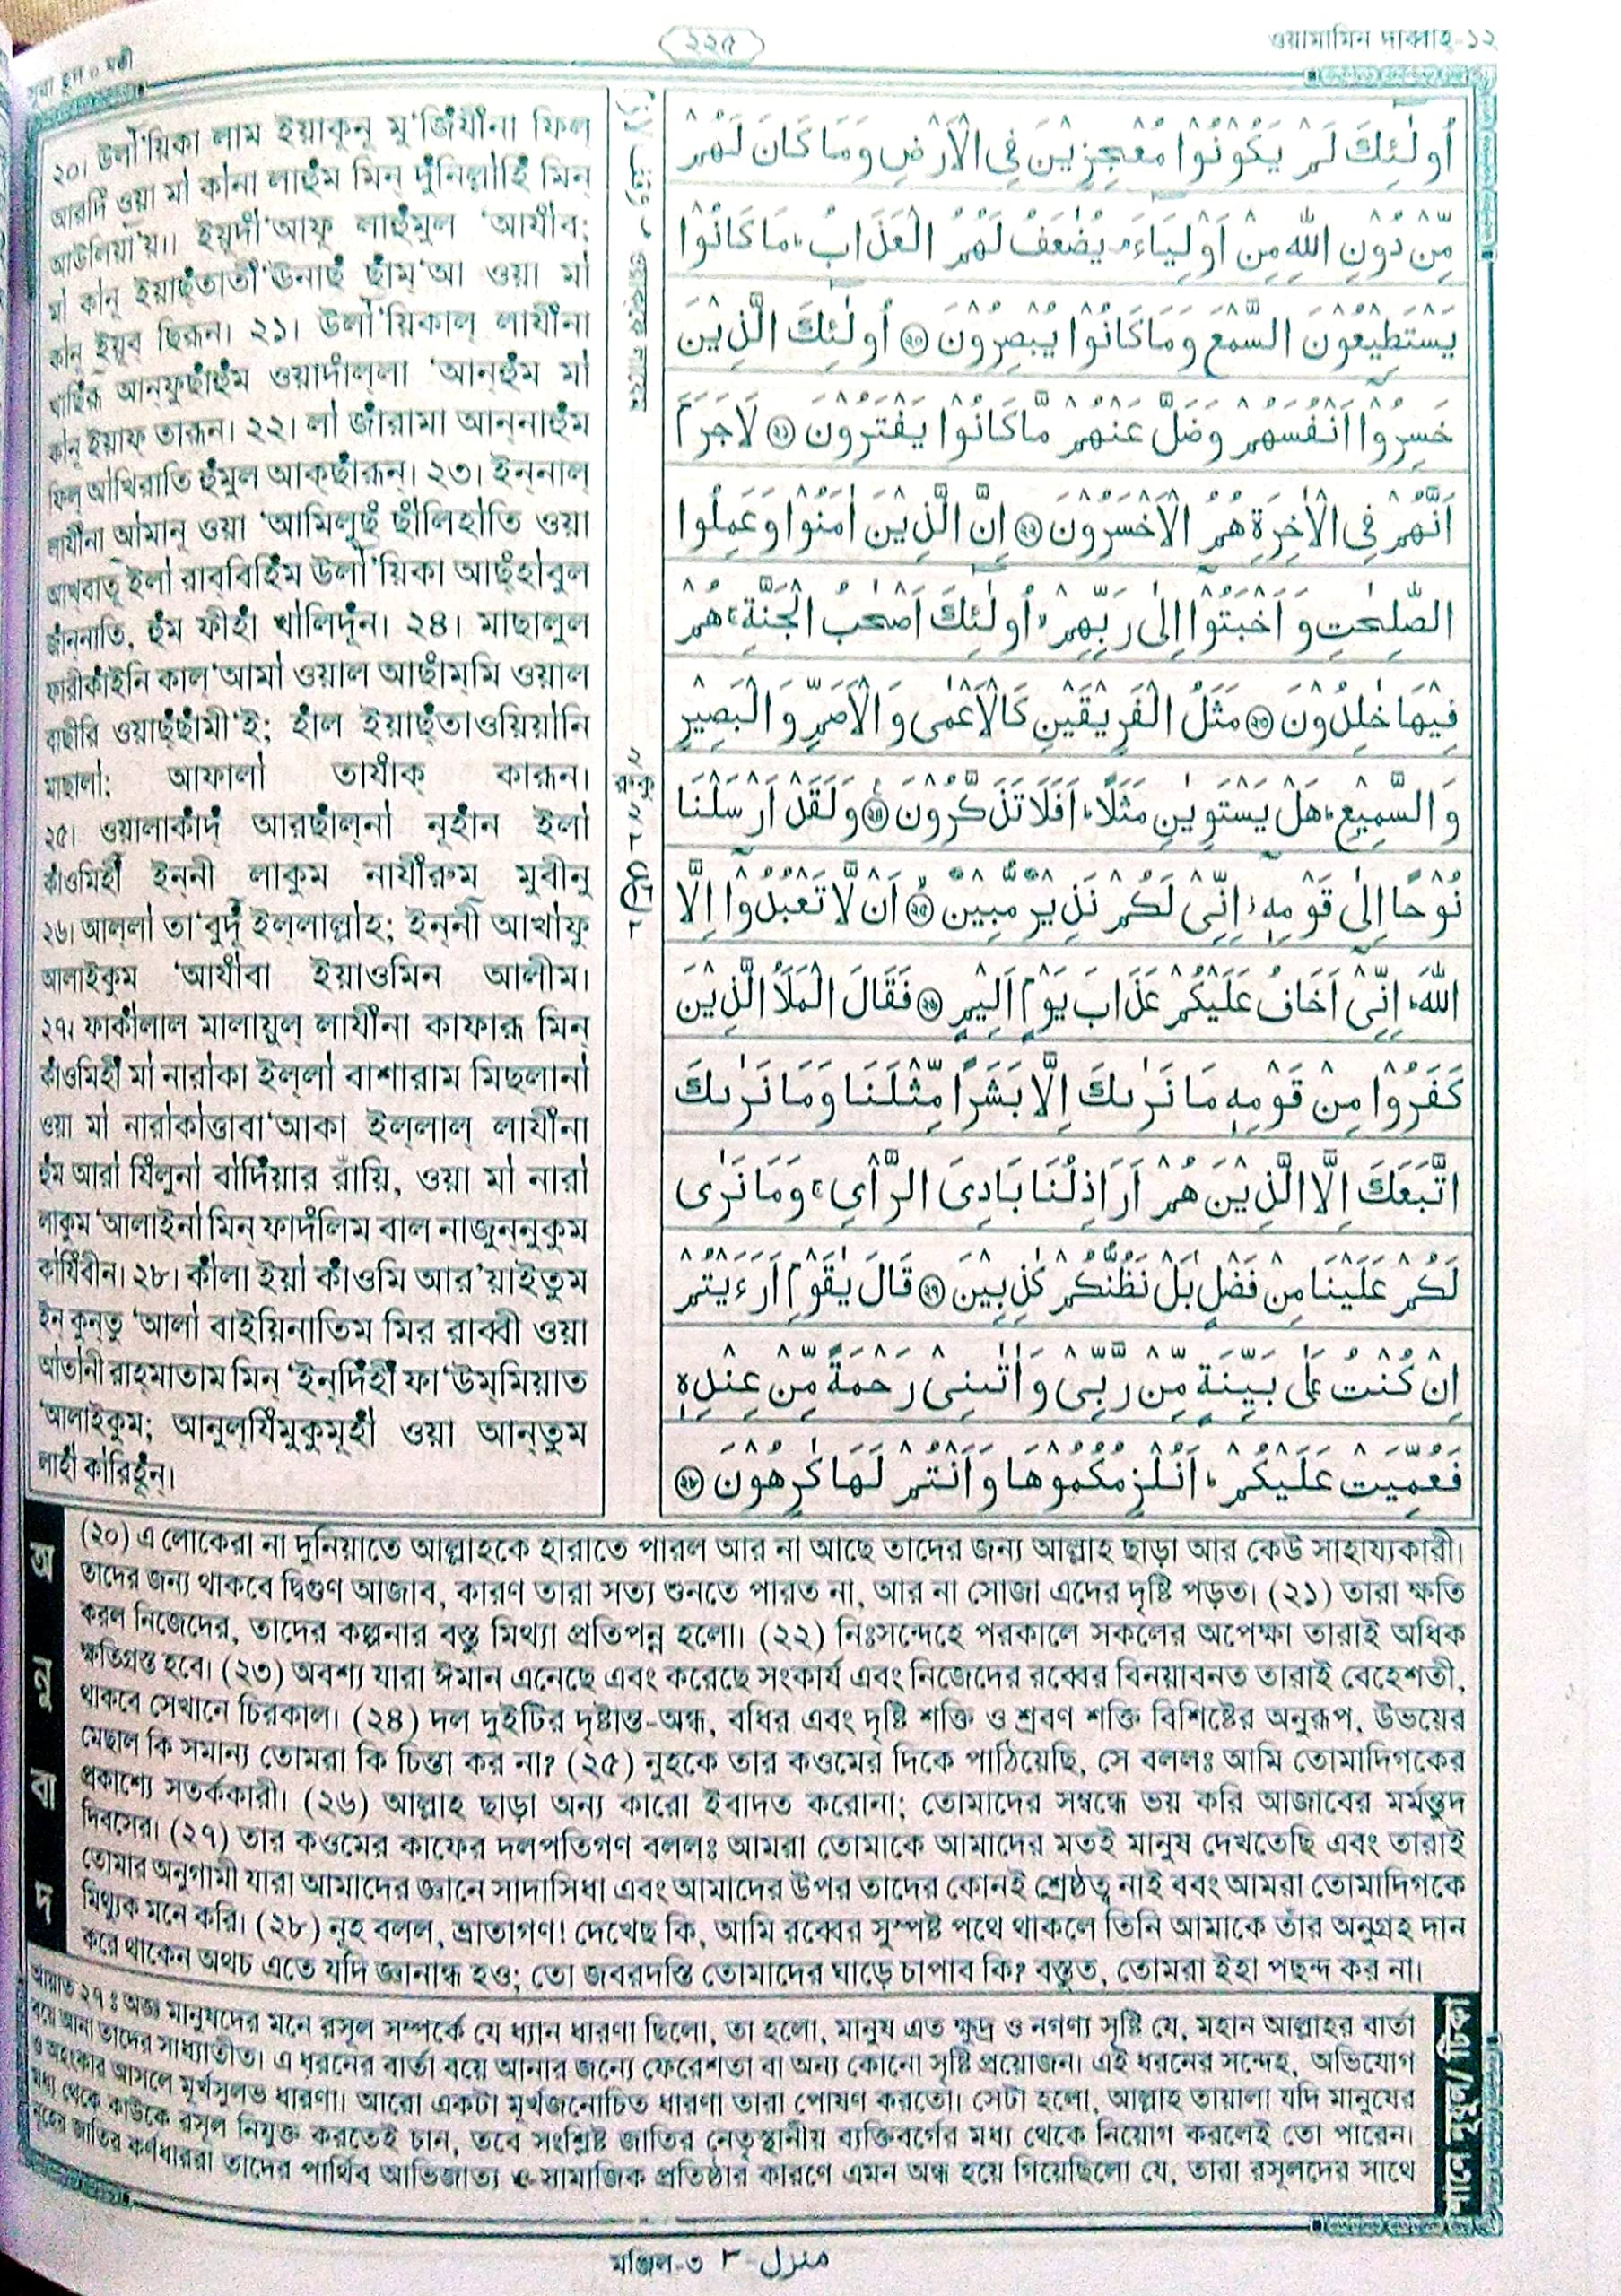 সূরা হূদ ০ মক্কী
২২৫
ওয়ামামিন দাব্বাহ-১২
২০। উলা'য়িকা লাম ইয়াকূনূ মু'জিযীনা ফিল্
আরদি ওয়া মা কানা লাহুম মিন্ দুনিল্লাহি মিন্
আউলিয়া'য়।। ইয়ুদা'আফু লাহুমুল 'আযাব;
মা কানূ ইয়াছ্তাতী'ঊনাছ্ ছাম্'আ ওয়া মা
কানূ ইয়ুব্ ছিরূন। ২১। উলা'য়িকাল্ লাযীনা
খাছিরূ আন্ফুছাহুম ওয়াদাল্লা 'আন্হুম মা
কানূ ইয়াফ্ তারূন। ২২। লা জারামা আন্নাহুম
ফিল্ আখিরাতি হুমুল আক্ছারূন্। ২৩। ইন্নাল্
লাযীনা আমানূ ওয়া 'আমিলুছ্ ছালিহাতি ওয়া
আখ্বাতূ ইলা রাব্বিহিম উলা'য়িকা আছ্হাবুল
জান্নাতি, হুম ফীহা খালিদূন। ২৪। মাছালুল
ফারীকাইনি কাল্'আমা ওয়াল আছাম্মি ওয়াল
বাছীরি ওয়াছ্ছামী'ই; হাল ইয়াছ্তাওয়িয়ানি
মাছালা; আফালা তাযাক্ কারূন।
২৫। ওয়ালাকাদ্ আরছাল্না নূহান ইলা
কাওমিহী ইন্নী লাকুম নাযীরুম্ মুবীনু
২৬। আল্লা তা'বুদূ ইল্লাল্লাহ; ইন্নী আখাফু
আলাইকুম 'আযাবা ইয়াওমিন আলীম।
২৭। ফাকালাল মালায়ুল্ লাযীনা কাফারূ মিন্
কাওমিহী মা নারাকা ইল্লা বাশারাম মিছলানা
ওয়া মা নারাকাত্তাবা'আকা ইল্লাল্ লাযীনা
হুম আরা যিলুনা বাদিয়ার রায়ি, ওয়া মা নারা
লাকুম 'আলাইনা মিন্ ফাদলিম বাল নাজুন্নুকুম
কাযিবীন। ২৮। কালা ইয়া কাওমি আর'য়াইতুম
ইন কুন্তু 'আলা বাইয়িনাতিম মির রাব্বী ওয়া
আতানী রাহ্মাতাম মিন্ 'ইন্দিহী ফা'উম্মিয়াত
'আলাইকুম; আনুল্যিমুকুমূহা ওয়া আন্তুম
লাহা কারিহূন্।
রুকু
اُولٰٓئِكَ لَمْ يَكُوْنُوْا مُعْجِزِيْنَ فِى الْاَرْضِ وَمَا كَانَ لَهُمْ
مِّنْ دُوْنِ اللّٰهِ مِنْ اَوْلِيَآءَ ۘ يُضٰعَفُ لَهُمُ الْعَذَابُ ؕ مَا كَانُوْا
يَسْتَطِيْعُوْنَ السَّمْعَ وَمَا كَانُوْا يُبْصِرُوْنَ ﴿۲۰﴾ اُولٰٓئِكَ الَّذِيْنَ
خَسِرُوْۤا اَنْفُسَهُمْ وَضَلَّ عَنْهُمْ مَّا كَانُوْا يَفْتَرُوْنَ ﴿۲۱﴾ لَاجَرَمَ
اَنَّهُمْ فِى الْاٰخِرَةِ هُمُ الْاَخْسَرُوْنَ ﴿۲۲﴾ اِنَّ الَّذِيْنَ اٰمَنُوْا وَعَمِلُوا
الصّٰلِحٰتِ وَ اَخْبَتُوْۤا اِلٰى رَبِّهِمْ ۙ اُولٰٓئِكَ اَصْحٰبُ الْجَنَّةِ ۚ هُمْ
فِيْهَا خٰلِدُوْنَ ﴿۲۳﴾ مَثَلُ الْفَرِيْقَيْنِ كَالْاَعْمٰى وَ الْاَصَمِّ وَ الْبَصِيْرِ
وَ السَّمِيْعِ ؕ هَلْ يَسْتَوِيٰنِ مَثَلًا ؕ اَفَلَا تَذَكَّرُوْنَ ﴿۲۴﴾ وَلَقَدْ اَرْسَلْنَا
نُوْحًا اِلٰى قَوْمِهٖۤ ۫ اِنِّىْ لَكُمْ نَذِيْرٌ مُّبِيْنٌ ﴿۲۵﴾ اَنْ لَّا تَعْبُدُوْۤا اِلَّا
اللّٰهَ ؕ اِنِّىْۤ اَخَافُ عَلَيْكُمْ عَذَابَ يَوْمٍ اَلِيْمٍ ﴿۲۶﴾ فَقَالَ الْمَلَاُ الَّذِيْنَ
كَفَرُوْا مِنْ قَوْمِهٖ مَا نَرٰىكَ اِلَّا بَشَرًا مِّثْلَنَا وَمَا نَرٰىكَ
اتَّبَعَكَ اِلَّا الَّذِيْنَ هُمْ اَرَاذِلُنَا بَادِىَ الرَّاْىِ ۚ وَمَا نَرٰى
لَكُمْ عَلَيْنَا مِنْ فَضْلٍۢ بَلْ نَظُنُّكُمْ كٰذِبِيْنَ ﴿۲۷﴾ قَالَ يٰقَوْمِ اَرَءَيْتُمْ
اِنْ كُنْتُ عَلٰى بَيِّنَةٍ مِّنْ رَّبِّىْ وَ اٰتٰىنِىْ رَحْمَةً مِّنْ عِنْدِهٖ
فَعُمِّيَتْ عَلَيْكُمْ ؕ اَنُلْزِمُكُمُوْهَا وَ اَنْتُمْ لَهَا كٰرِهُوْنَ ﴿۲۸﴾
অনুবাদ
(২০) এ লোকেরা না দুনিয়াতে আল্লাহকে হারাতে পারল আর না আছে তাদের জন্য আল্লাহ ছাড়া আর কেউ সাহায্যকারী।
তাদের জন্য থাকবে দ্বিগুণ আজাব, কারণ তারা সত্য শুনতে পারত না, আর না সোজা এদের দৃষ্টি পড়ত। (২১) তারা ক্ষতি
করল নিজেদের, তাদের কল্পনার বস্তু মিথ্যা প্রতিপন্ন হলো। (২২) নিঃসন্দেহে পরকালে সকলের অপেক্ষা তারাই অধিক
ক্ষতিগ্রস্ত হবে। (২৩) অবশ্য যারা ঈমান এনেছে এবং করেছে সৎকার্য এবং নিজেদের রব্বের বিনয়াবনত তারাই বেহেশতী,
থাকবে সেখানে চিরকাল। (২৪) দল দুইটির দৃষ্টান্ত-অন্ধ, বধির এবং দৃষ্টি শক্তি ও শ্রবণ শক্তি বিশিষ্টের অনুরূপ, উভয়ের
মেছাল কি সমান্য তোমরা কি চিন্তা কর না? (২৫) নুহকে তার কওমের দিকে পাঠিয়েছি, সে বললঃ আমি তোমাদিগকের
প্রকাশ্যে সতর্ককারী। (২৬) আল্লাহ ছাড়া অন্য কারো ইবাদত করোনা; তোমাদের সম্বন্ধে ভয় করি আজাবের মর্মন্তুদ
দিবসের। (২৭) তার কওমের কাফের দলপতিগণ বললঃ আমরা তোমাকে আমাদের মতই মানুষ দেখতেছি এবং তারাই
তোমার অনুগামী যারা আমাদের জ্ঞানে সাদাসিধা এবং আমাদের উপর তাদের কোনই শ্রেষ্ঠত্ব নাই ববং আমরা তোমাদিগকে
মিথ্যুক মনে করি। (২৮) নূহ বলল, ভ্রাতাগণ! দেখেছ কি, আমি রব্বের সুস্পষ্ট পথে থাকলে তিনি আমাকে তাঁর অনুগ্রহ দান
করে থাকেন অথচ এতে যদি জ্ঞানান্ধ হও; তো জবরদস্তি তোমাদের ঘাড়ে চাপাব কি? বস্তুত, তোমরা ইহা পছন্দ কর না।
শানে নুযুল/টিকা
আয়াত ২৭ ঃ অজ্ঞ মানুষদের মনে রসূল সম্পর্কে যে ধ্যান ধারণা ছিলো, তা হলো, মানুষ এত ক্ষুদ্র ও নগণ্য সৃষ্টি যে, মহান আল্লাহর বার্তা
বয়ে আনা তাদের সাধ্যাতীত। এ ধরনের বার্তা বয়ে আনার জন্যে ফেরেশতা বা অন্য কোনো সৃষ্টি প্রয়োজন। এই ধরনের সন্দেহ, অভিযোগ
ও অহংকার আসলে মূর্খসুলভ ধারণা। আরো একটা মুর্খজনোচিত ধারণা তারা পোষণ করতো। সেটা হলো, আল্লাহ তায়ালা যদি মানুষের
মধ্য থেকে কাউকে রসূল নিযুক্ত করতেই চান, তবে সংশ্লিষ্ট জাতির নেতৃস্থানীয় ব্যক্তিবর্গের মধ্য থেকে নিয়োগ করলেই তো পারেন।
নূহের জাতির কর্ণধাররা তাদের পার্থিব আভিজাত্য ও সামাজিক প্রতিষ্ঠার কারণে এমন অন্ধ হয়ে গিয়েছিলো যে, তারা রসূলদের সাথে
মঞ্জিল-৩ منزل-۳